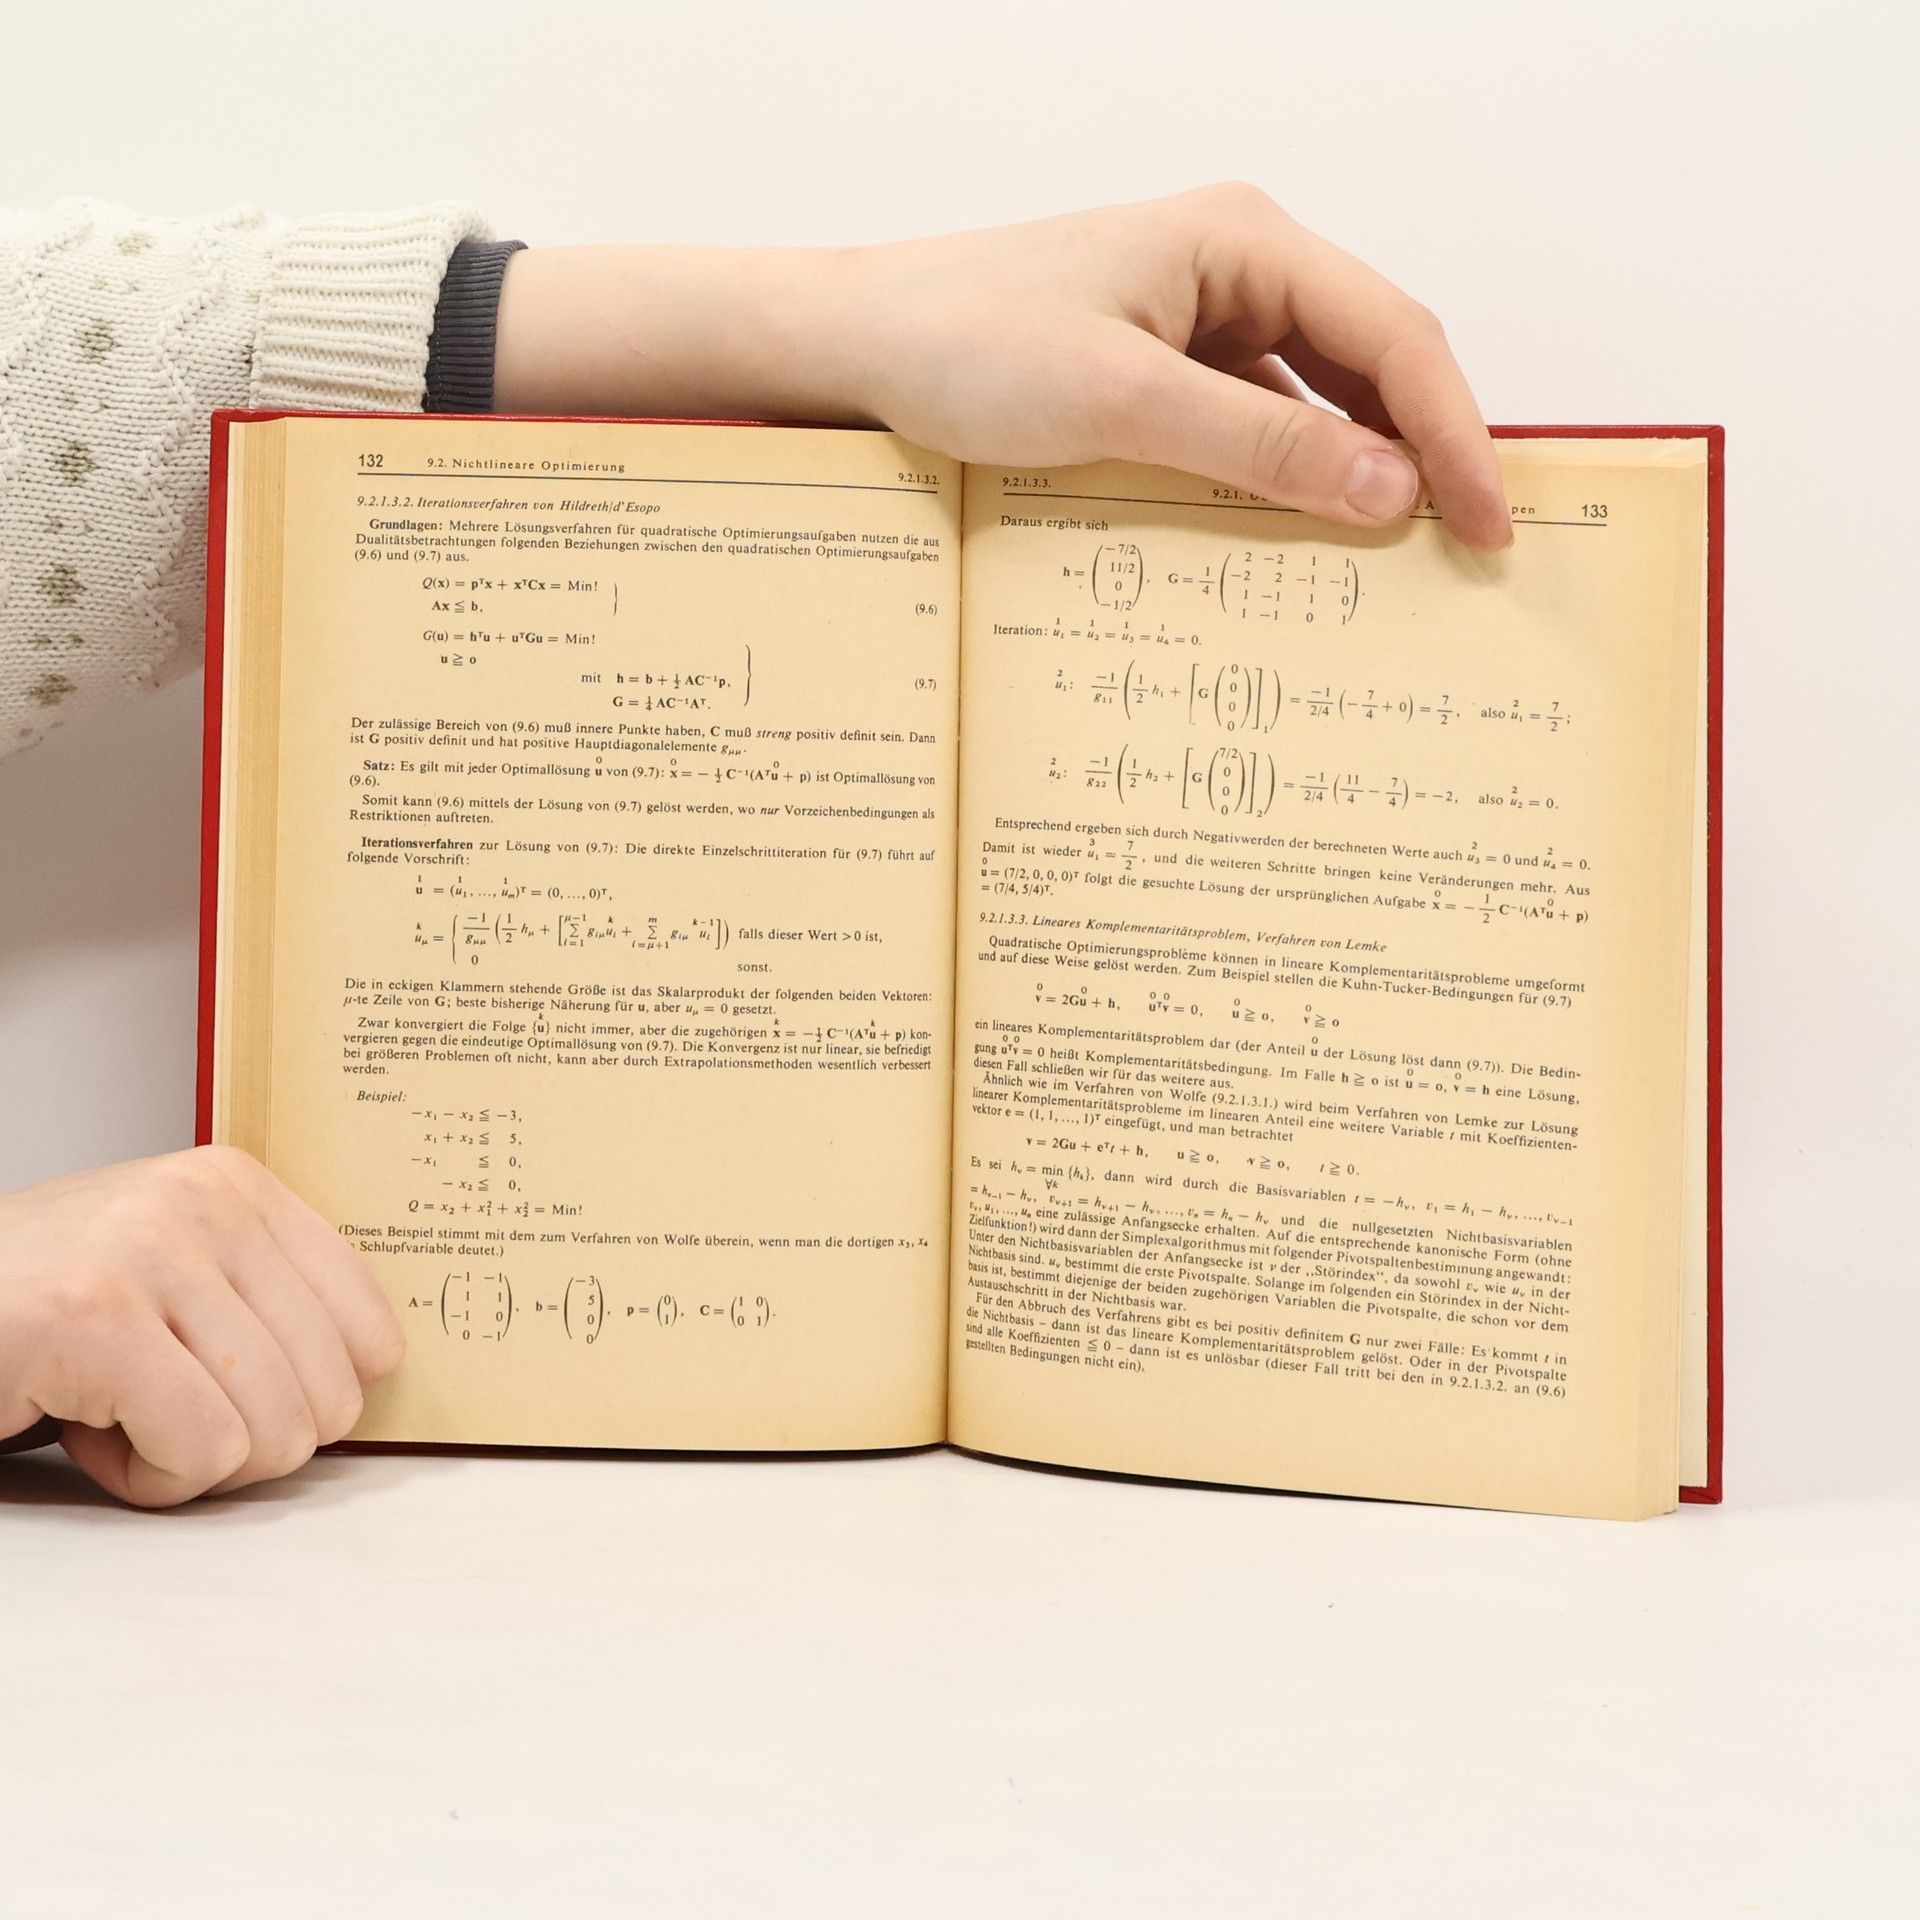 132 9.2. Nichtlineare Optimierung 9.2.1.3.2.
9.2.1.3.2. Iterationsverfahren von Hildreth/d'Esopo
Grundlagen: Mehrere Lösungsverfahren für quadratische Optimierungsaufgaben nutzen die aus
Dualitätsbetrachtungen folgenden Beziehungen zwischen den quadratischen Optimierungsaufgaben
(9.6) und (9.7) aus.
Q(x) = pᵀx + xᵀCx = Min!
Ax ≦ b, (9.6)
G(u) = hᵀu + uᵀGu = Min!
u ≧ o
mit h = b + ½ AC⁻¹p, (9.7)
G = ¼ AC⁻¹Aᵀ.
Der zulässige Bereich von (9.6) muß innere Punkte haben, C muß streng positiv definit sein. Dann
ist G positiv definit und hat positive Hauptdiagonalelemente g_μμ.
Satz: Es gilt mit jeder Optimallösung u⁰ von (9.7): x⁰ = − ½ C⁻¹(Aᵀu⁰ + p) ist Optimallösung von
(9.6).
Somit kann (9.6) mittels der Lösung von (9.7) gelöst werden, wo nur Vorzeichenbedingungen als
Restriktionen auftreten.
Iterationsverfahren zur Lösung von (9.7): Die direkte Einzelschrittiteration für (9.7) führt auf
folgende Vorschrift:
u¹ = (u¹₁, ..., u¹ₘ)ᵀ = (0, ..., 0)ᵀ,
uᵏ_μ = { −1/g_μμ (1/2 h_μ + [Σ_{i=1}^{μ−1} g_iμ uᵏ_i + Σ_{i=μ+1}^{m} g_iμ uᵏ⁻¹_i]) falls dieser Wert > 0 ist,
0 sonst.
Die in eckigen Klammern stehende Größe ist das Skalarprodukt der folgenden beiden Vektoren:
μ-te Zeile von G; beste bisherige Näherung für u, aber u_μ = 0 gesetzt.
Zwar konvergiert die Folge {uᵏ} nicht immer, aber die zugehörigen xᵏ = −½ C⁻¹(Aᵀuᵏ + p) kon-
vergieren gegen die eindeutige Optimallösung von (9.7). Die Konvergenz ist nur linear, sie befriedigt
bei größeren Problemen oft nicht, kann aber durch Extrapolationsmethoden wesentlich verbessert
werden.
Beispiel:
−x₁ − x₂ ≦ −3,
x₁ + x₂ ≦ 5,
−x₁ ≦ 0,
− x₂ ≦ 0,
Q = x₂ + x₁² + x₂² = Min!
(Dieses Beispiel stimmt mit dem zum Verfahren von Wolfe überein, wenn man die dortigen x₃, x₄
Schlupfvariable deutet.)
A = (−1 −1; 1 1; −1 0; 0 −1), b = (−3; 5; 0; 0), p = (0; 1), C = (1 0; 0 1).
9.2.1.3.3. 9.2.1. 133
Daraus ergibt sich
h = (−7/2; 11/2; 0; −1/2), G = 1/4 (2 −2 1 1; −2 2 −1 −1; 1 −1 1 0; 1 −1 0 1).
Iteration: u¹₁ = u¹₂ = u¹₃ = u¹₄ = 0.
u²₁: −1/g₁₁ (1/2 h₁ + [G (0; 0; 0; 0)]₁) = −1/(2/4) (−7/4 + 0) = 7/2, also u²₁ = 7/2;
u²₂: −1/g₂₂ (1/2 h₂ + [G (7/2; 0; 0; 0)]₂) = −1/(2/4) (11/4 − 7/4) = −2, also u²₂ = 0.
Entsprechend ergeben sich durch Negativwerden der berechneten Werte auch u²₃ = 0 und u²₄ = 0.
Damit ist wieder u³₁ = 7/2, und die weiteren Schritte bringen keine Veränderungen mehr. Aus
u⁰ = (7/2, 0, 0, 0)ᵀ folgt die gesuchte Lösung der ursprünglichen Aufgabe x⁰ = −1/2 C⁻¹(Aᵀu⁰ + p)
= (7/4, 5/4)ᵀ.
9.2.1.3.3. Lineares Komplementaritätsproblem, Verfahren von Lemke
Quadratische Optimierungsprobleme können in lineare Komplementaritätsprobleme umgeformt
und auf diese Weise gelöst werden. Zum Beispiel stellen die Kuhn-Tucker-Bedingungen für (9.7)
v⁰ = 2Gu⁰ + h, u⁰ᵀv⁰ = 0, u⁰ ≧ o, v⁰ ≧ o
ein lineares Komplementaritätsproblem dar (der Anteil u⁰ der Lösung löst dann (9.7)). Die Bedin-
gung u⁰ᵀv⁰ = 0 heißt Komplementaritätsbedingung. Im Falle h ≧ o ist u⁰ = o, v⁰ = h eine Lösung,
diesen Fall schließen wir für das weitere aus.
Ähnlich wie im Verfahren von Wolfe (9.2.1.3.1.) wird beim Verfahren von Lemke zur Lösung
linearer Komplementaritätsprobleme im linearen Anteil eine weitere Variable t mit Koeffizienten-
vektor e = (1, 1, ..., 1)ᵀ eingefügt, und man betrachtet
v = 2Gu + eᵀt + h, u ≧ o, v ≧ o, t ≧ 0.
Es sei h_ν = min_{∀k} {h_k}, dann wird durch die Basisvariablen t = −h_ν, v₁ = h₁ − h_ν, ..., v_ν₋₁
= h_ν₋₁ − h_ν, v_ν₊₁ = h_ν₊₁ − h_ν, ..., vₙ = hₙ − h_ν und die nullgesetzten Nichtbasisvariablen
v_ν, u₁, ..., uₙ eine zulässige Anfangsecke erhalten. Auf die entsprechende kanonische Form (ohne
Zielfunktion!) wird dann der Simplexalgorithmus mit folgender Pivotspaltenbestimmung angewandt:
Unter den Nichtbasisvariablen der Anfangsecke ist ν der „Störindex“, da sowohl v_ν wie u_ν in der
Nichtbasis sind. u_ν bestimmt die erste Pivotspalte. Solange im folgenden ein Störindex in der Nicht-
basis ist, bestimmt diejenige der beiden zugehörigen Variablen die Pivotspalte, die schon vor dem
Austauschschritt in der Nichtbasis war.
Für den Abbruch des Verfahrens gibt es bei positiv definitem G nur zwei Fälle: Es kommt t in
die Nichtbasis – dann ist das lineare Komplementaritätsproblem gelöst. Oder in der Pivotspalte
sind alle Koeffizienten ≦ 0 – dann ist es unlösbar (dieser Fall tritt bei den in 9.2.1.3.2. an (9.6)
gestellten Bedingungen nicht ein).